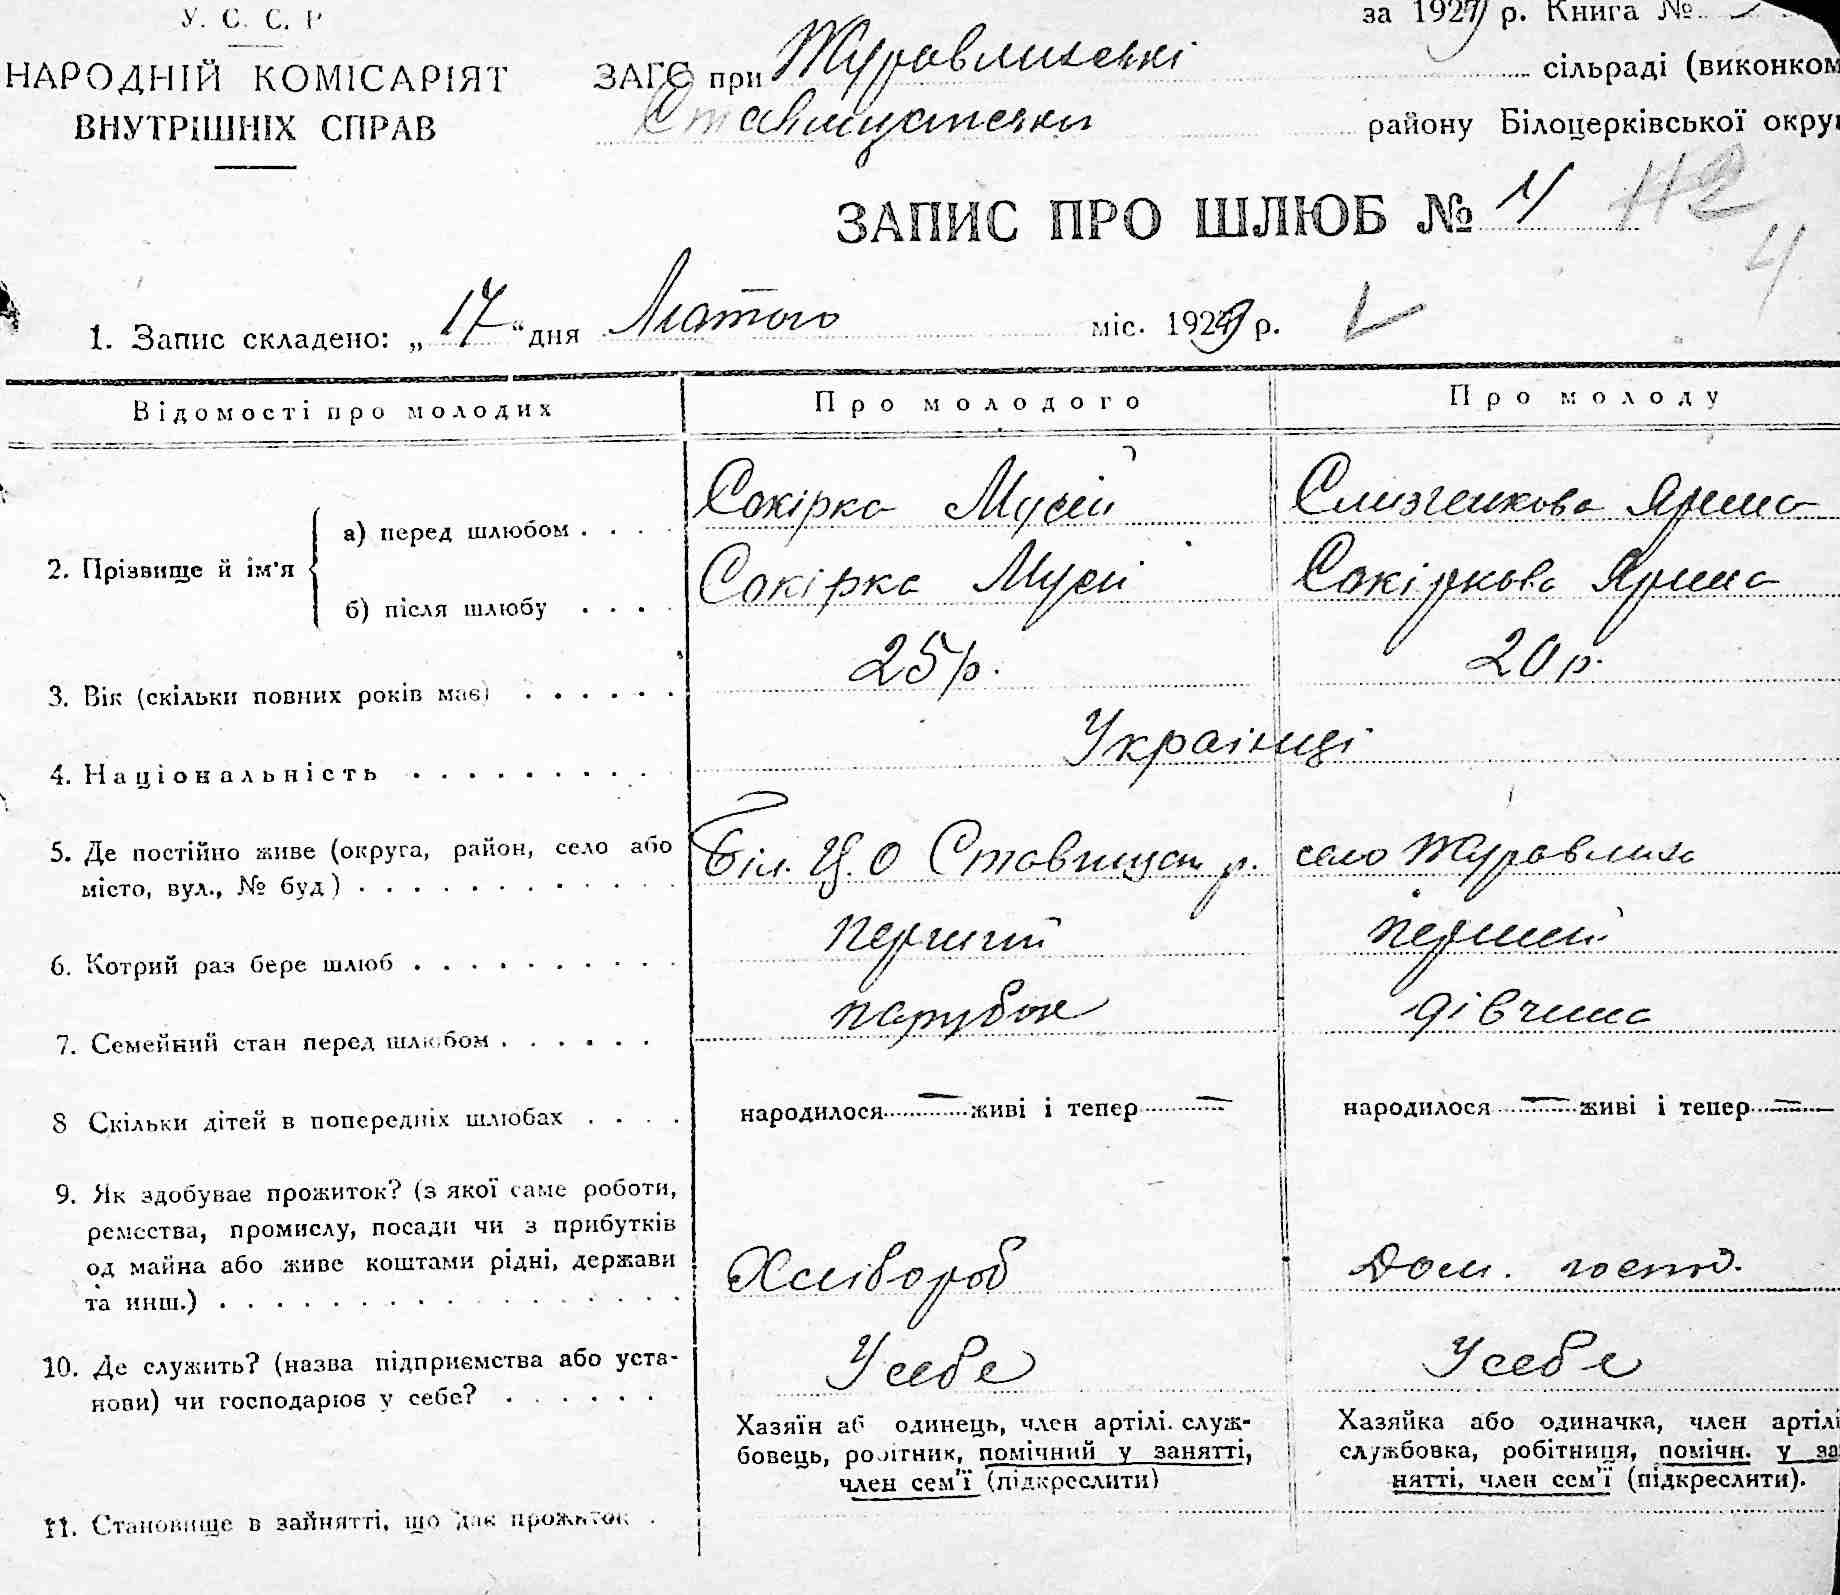 У. С. С. Р
за 1929 р. Книга №
НАРОДНІЙ КОМІСАРІЯТ
ВНУТРІШНІХ СПРАВ
ЗАГС при Журавлиській сільраді (виконком
Ставищанськ району Білоцерківської округ
ЗАПИС ПРО ШЛЮБ № 4
4
1. Запис складено: „17“ дня Лютого міс. 1929 р.
Відомості про молодих
Про молодого
Про молоду
2. Прізвище й ім'я
а) перед шлюбом . . . .
Сокірка Мусій
Слизченкова Ярина
б) після шлюбу . . . .
Сокірка Мусій
Сокіркова Ярина
3. Вік (скільки повних років має) . . . . . .
25 р.
20 р.
4. Національність . . . . . . . . .
Українці
5. Де постійно живе (округа, район, село або
місто, вул., № буд) . . . . . . . . . . . .
Біл. Ц. О Ставищан р. село Журавлиха
6. Котрий раз бере шлюб . . . . . . . . . .
перший
перший
7. Семейний стан перед шлюбом . . . . . .
парубок
дівчина
8 Скільки дітей в попередніх шлюбах . . . .
народилося — живі і тепер —
народилося — живі і тепер —
9. Як здобуває прожиток? (з якої саме роботи,
ремества, промислу, посади чи з прибутків
од майна або живе коштами рідні, держави
та инш.) . . . . . . . . . . . . . . . . .
Хлібороб
Дом. госпо.
10. Де служить? (назва підприємства або уста-
нови) чи господарює у себе? . . . . . .
У себе
У себе
Хазяїн аб одинець, член артілі. служ-
бовець, робітник, помічний у занятті,
член сем'ї (підкреслити)
Хазяйка або одиначка, член артілі
службовка, робітниця, помічн. у за
нятті, член сем'ї (підкреслити).
11. Становище в зайнятті, що дає прожиток .